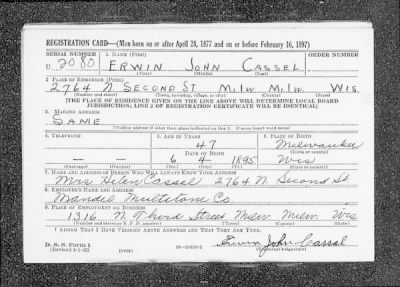 REGISTRATION CARD—(Men born on or after April 28, 1877 and on or before February 16, 1897)
SERIAL NUMBER 1. NAME (Print) ORDER NUMBER
U 2080 ERWIN JOHN CASSEL
(First) (Middle) (Last)
2. PLACE OF RESIDENCE (Print)
2764 N. SECOND ST MILW MILW. WIS
(Number and street) (Town, township, village, or city) (County) (State)
[THE PLACE OF RESIDENCE GIVEN ON THE LINE ABOVE WILL DETERMINE LOCAL BOARD
JURISDICTION; LINE 2 OF REGISTRATION CERTIFICATE WILL BE IDENTICAL]
3. MAILING ADDRESS
SAME
[Mailing address if other than place indicated on line 2. If same insert word same]
4. TELEPHONE 5. AGE IN YEARS 6. PLACE OF BIRTH
47 Milwaukee
DATE OF BIRTH (Town or county)
6 4 1895 Wis
(Exchange) (Number) (Mo.) (Day) (Yr.) (State or country)
7. NAME AND ADDRESS OF PERSON WHO WILL ALWAYS KNOW YOUR ADDRESS
Mrs Helen Cassel 2764 N. Second St
8. EMPLOYER'S NAME AND ADDRESS
Mandel Multitone Co
9. PLACE OF EMPLOYMENT OR BUSINESS
1316 N. Third Street Milw. Milw. Wis
(Number and street or R. F. D. number) (Town) (County) (State)
I AFFIRM THAT I HAVE VERIFIED ABOVE ANSWERS AND THAT THEY ARE TRUE.
D. S. S. Form 1
(Revised 4-1-42) (over) Erwin John Cassel
(Registrant's signature)